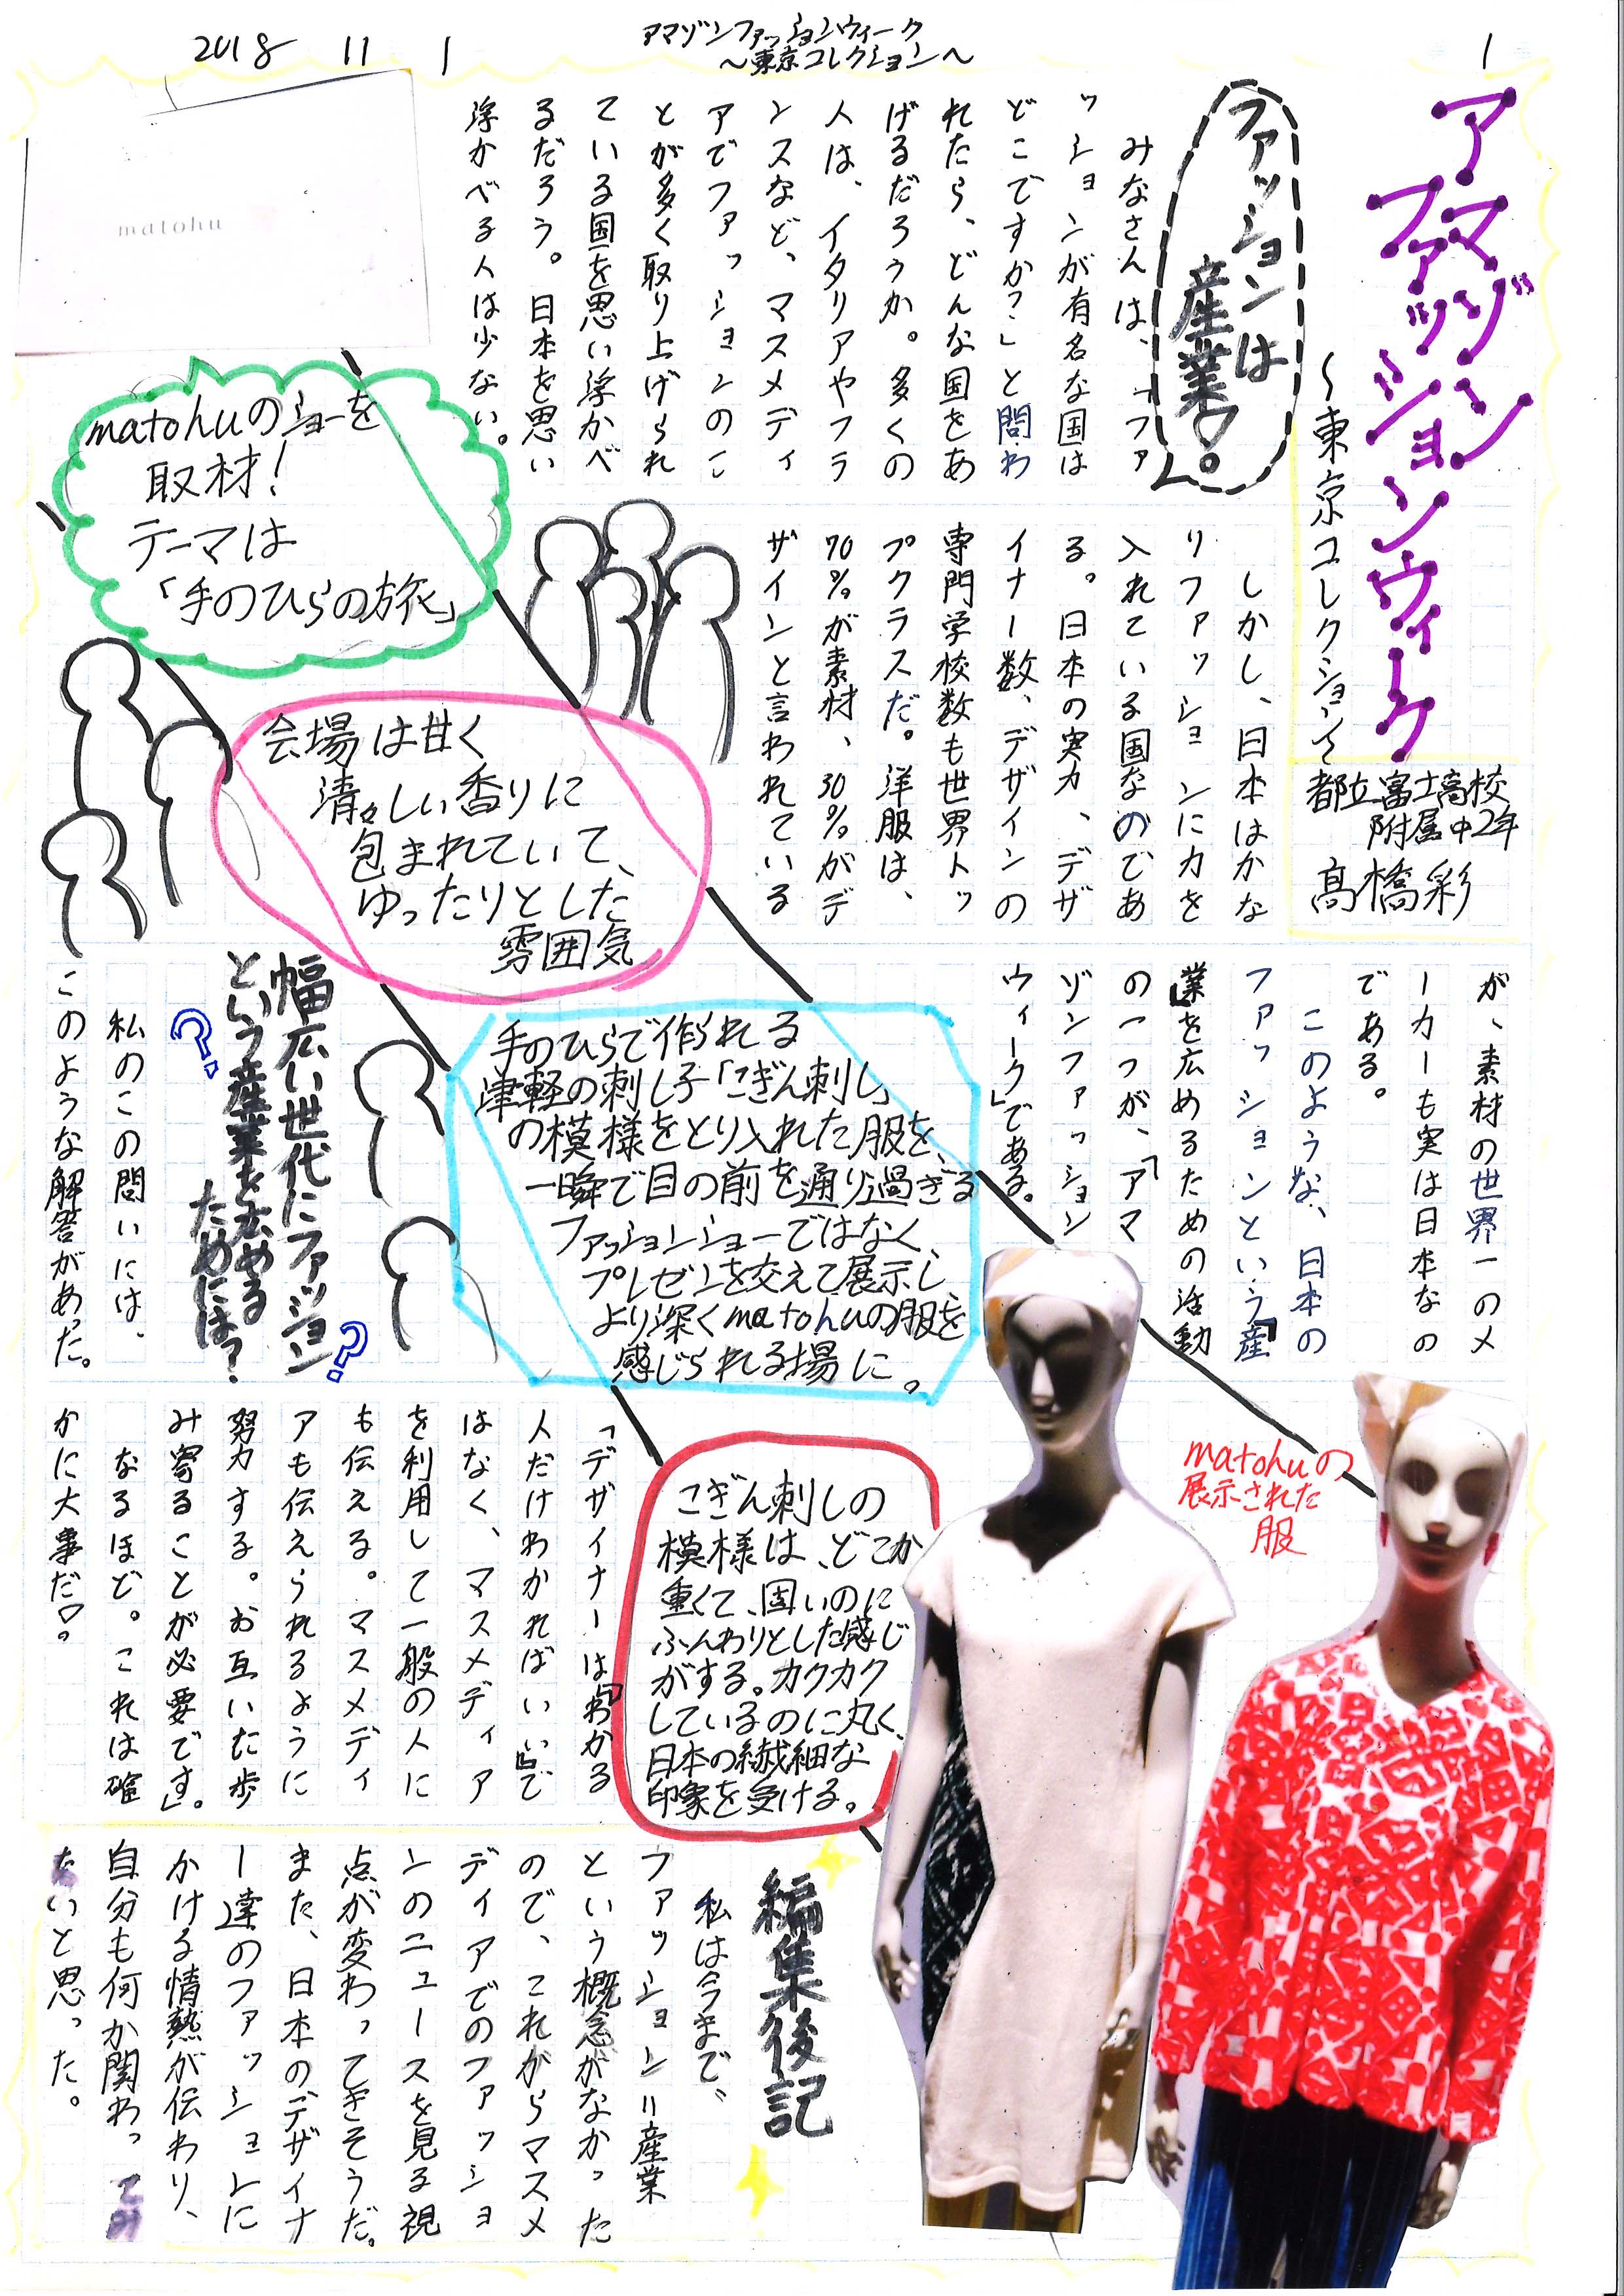 2018 11 1
アマゾンファッションウィーク
〜東京コレクション〜
1
アマゾン
ファッションウィーク
〜東京コレクション〜
都立富士高校
附属中2年
高橋彩
ファッションは
産業？。
みなさんは、「ファ
ッションが有名な国は
どこですか？」と問わ
れたら、どんな国をあ
げるだろうか。多くの
人は、イタリアやフラ
ンスなど、マスメディ
アでファッションのこ
とが多く取り上げられ
ている国を思い浮かべ
るだろう。日本を思い
浮かべる人は少ない。
matohu
しかし、日本はかな
りファッションに力を
入れている国なのであ
る。日本の実力、デザ
イナー数、デザインの
専門学校数も世界トッ
プクラスだ。洋服は、
70%が素材、30%がデ
ザインと言われている
が、素材の世界一のメ
ーカーも実は日本なの
である。
このような、日本の
ファッションという「産
業」を広めるための活動
の一つが、「アマ
ゾンファッション
ウィーク」である。
matohuのショーを
取材！
テーマは
「手のひらの旅」
会場は甘く
清々しい香りに
包まれていて、
ゆったりとした
雰囲気
手のひらで作られる
津軽の刺し子「こぎん刺し」
の模様をとり入れた服を、
一瞬で目の前を通り過ぎる
ファッションショーではなく、
プレゼンを交えて展示し、
より深くmatohuの服を
感じられる場に。
こぎん刺しの
模様は、どこか
重くて、固いのに
ふんわりとした感じ
がする。カクカク
しているのに丸く、
日本の繊細な
印象を受ける。
matohuの
展示された
服
幅広い世代にファッション
という産業を広める
ためには？
？
？
私のこの問いには、
このような解答があった。
「デザイナーは『わかる
人だけわかればいい』で
はなく、マスメディア
を利用して一般の人に
も伝える。マスメディ
アも伝えられるように
努力する。お互いた歩
み寄ることが必要です」。
なるほど。これは確
かに大事だ？。
編集後記
私は今まで、
ファッション＝産業
という概念がなかった
ので、これからマスメ
ディアでのファッショ
ンのニュースを見る視
点が変わってきそうだ。
また、日本のデザイナ
ー達のファッションに
かける情熱が伝わり、
自分も何か関わってみ
たいと思った。